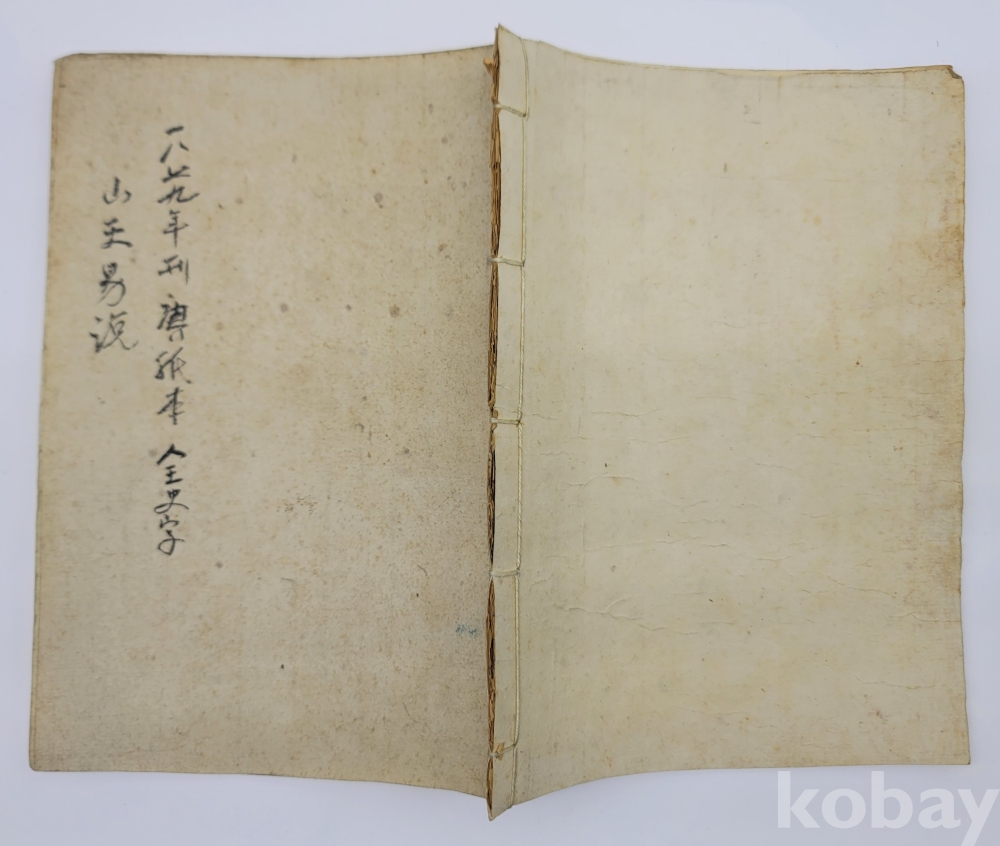 一八七九年刊 唐紙本 全史字
山天易説
kobay